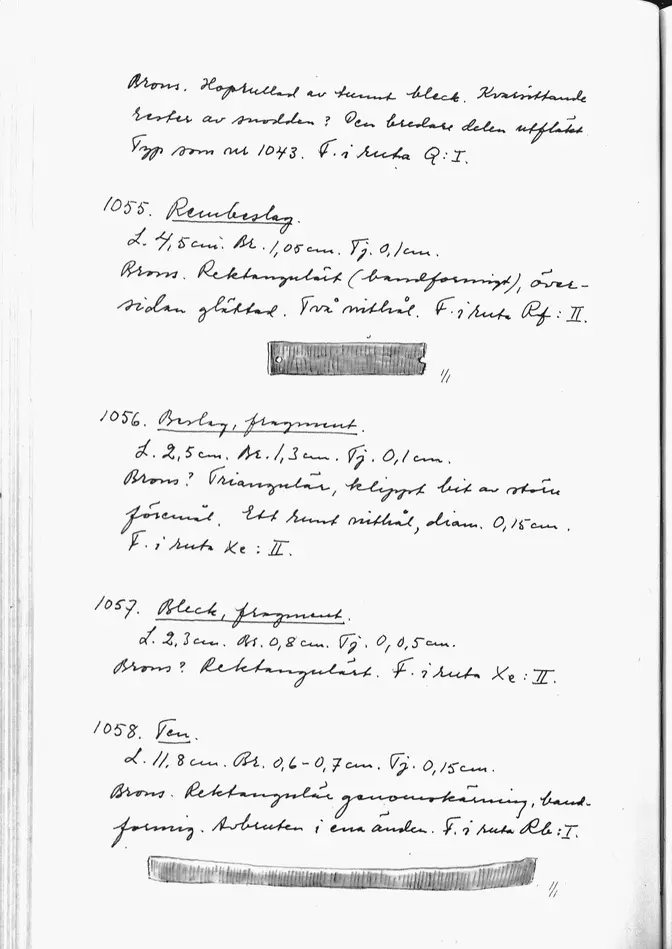 Brons. Hoprullad av tunnt bleck. Kvarsittande
rester av snodden? Den bredare delen utfläkt
Typ som nr 1043. F. i ruta Q:I.
1055. Rembeslag.
L. 4,5cm. Br. 1,05cm. Tj. 0,1cm.
Brons. Rektangulärt (bandformigt), över-
sidan glättad. Två nithål. F. i ruta Rf: II.
1/1
1056. Beslag, fragment.
L. 2,5cm. Br. 1,3cm. Tj. 0,1cm.
Brons? Triangulär, klippt bit av större
föremål. Ett runt nithål, diam. 0,15cm.
F. i ruta Xe: II.
1057. Bleck, fragment.
L. 2,3cm. Br. 0,8cm. Tj. 0,0,5cm.
Brons? Rektangulärt. F. i ruta Xe: II.
1058. Ten.
L. 11,8cm. Br. 0,6-0,7cm. Tj. 0,15cm.
Brons. Rektangulär genomskärning, band-
formig. Avbruten i ena änden. F. i ruta Rb: I.
1/1